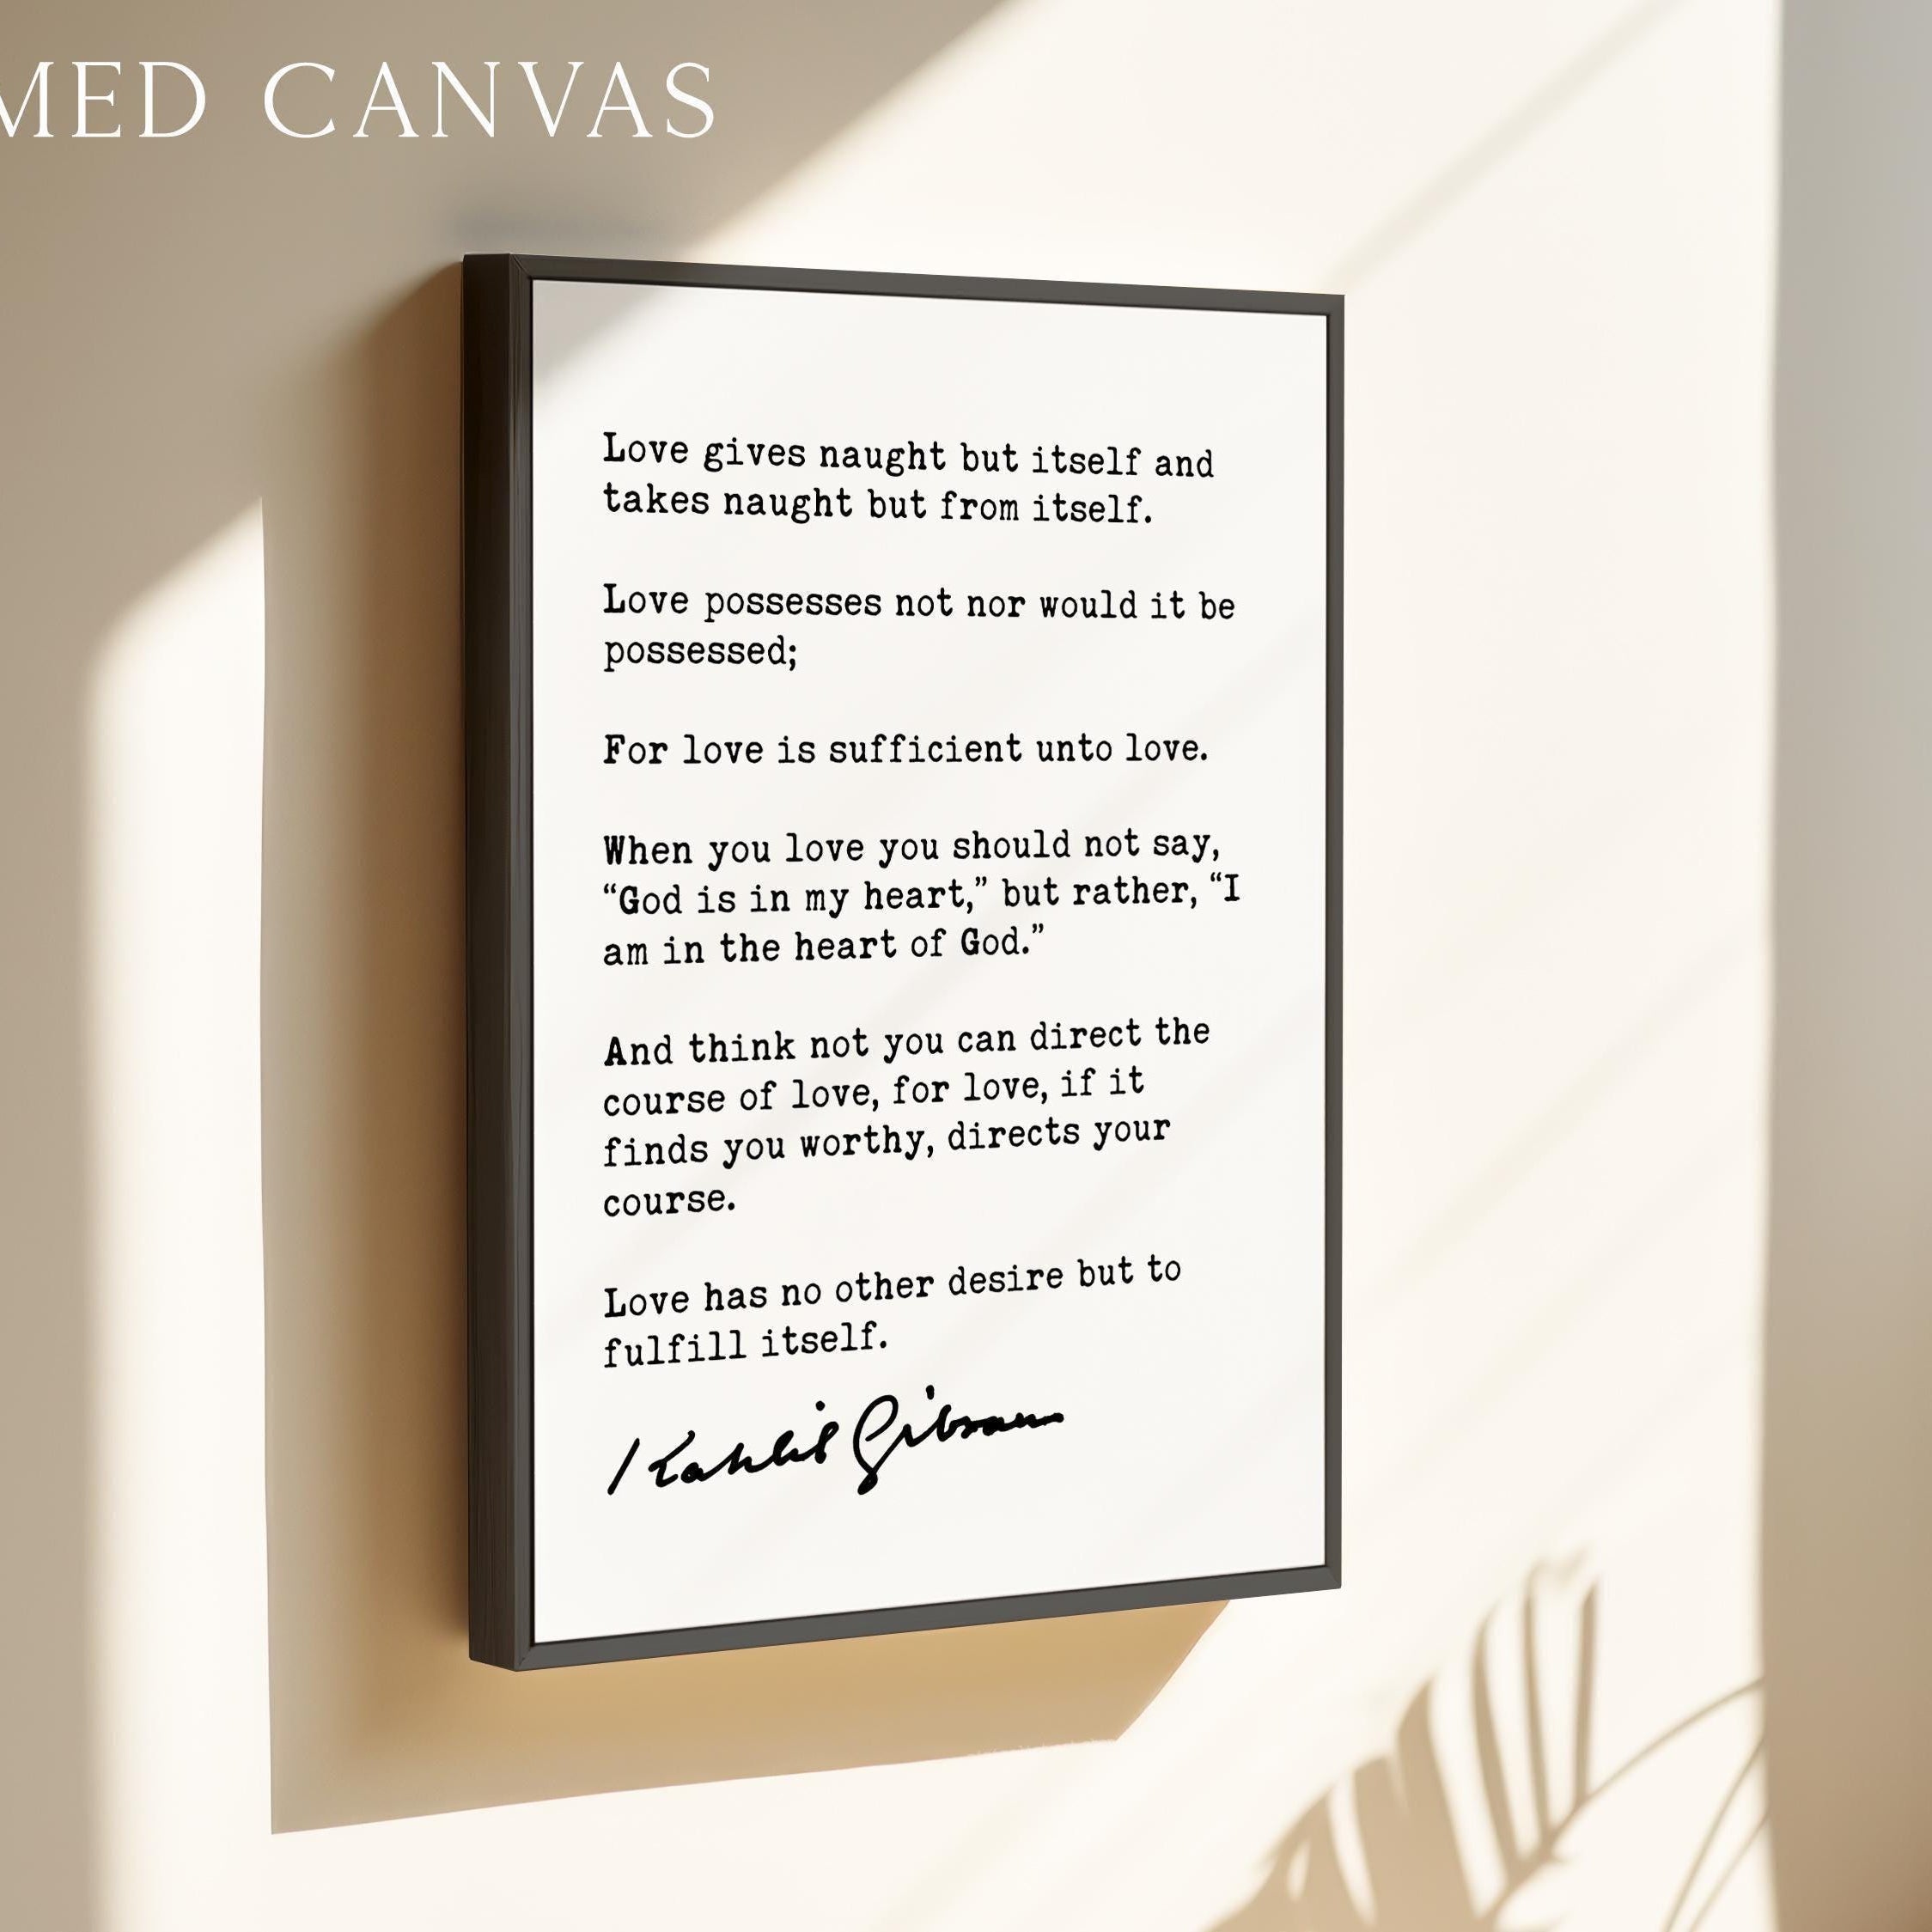 MED CANVAS
Love gives naught but itself and
takes naught but from itself.
Love possesses not nor would it be
possessed;
For love is sufficient unto love.
When you love you should not say,
“God is in my heart,” but rather, “I
am in the heart of God.”
And think not you can direct the
course of love, for love, if it
finds you worthy, directs your
course.
Love has no other desire but to
fulfill itself.
Kahlil Gibran